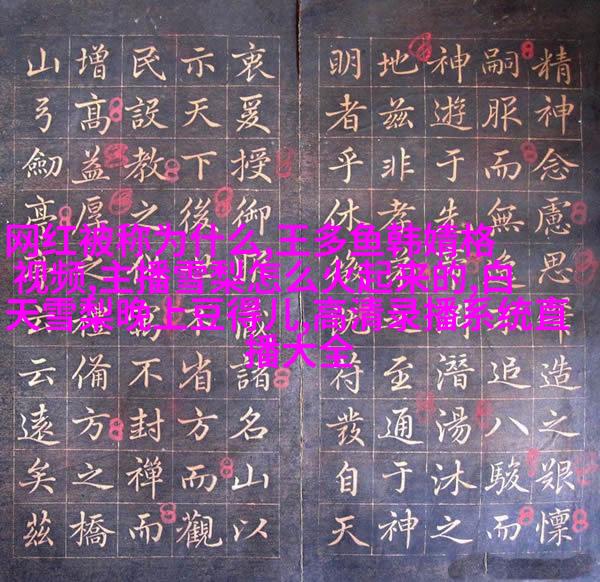 精神念慮思造之艱懍
嗣服而無追八駿而
神遊于先潛湯沐之
地茲非考至通于神
明者乎休符發自天
衷爰授御諸名山以
示天下後省方而觀
民設教之不封禪而
增高益厚備方之橋
山弓劒云遠矣茲
网红被称为什么,王多鱼韩婧格
视频,主播雪梨怎么火起来的,白
天雪梨晚上豆得儿,高清录播系统直
播大全